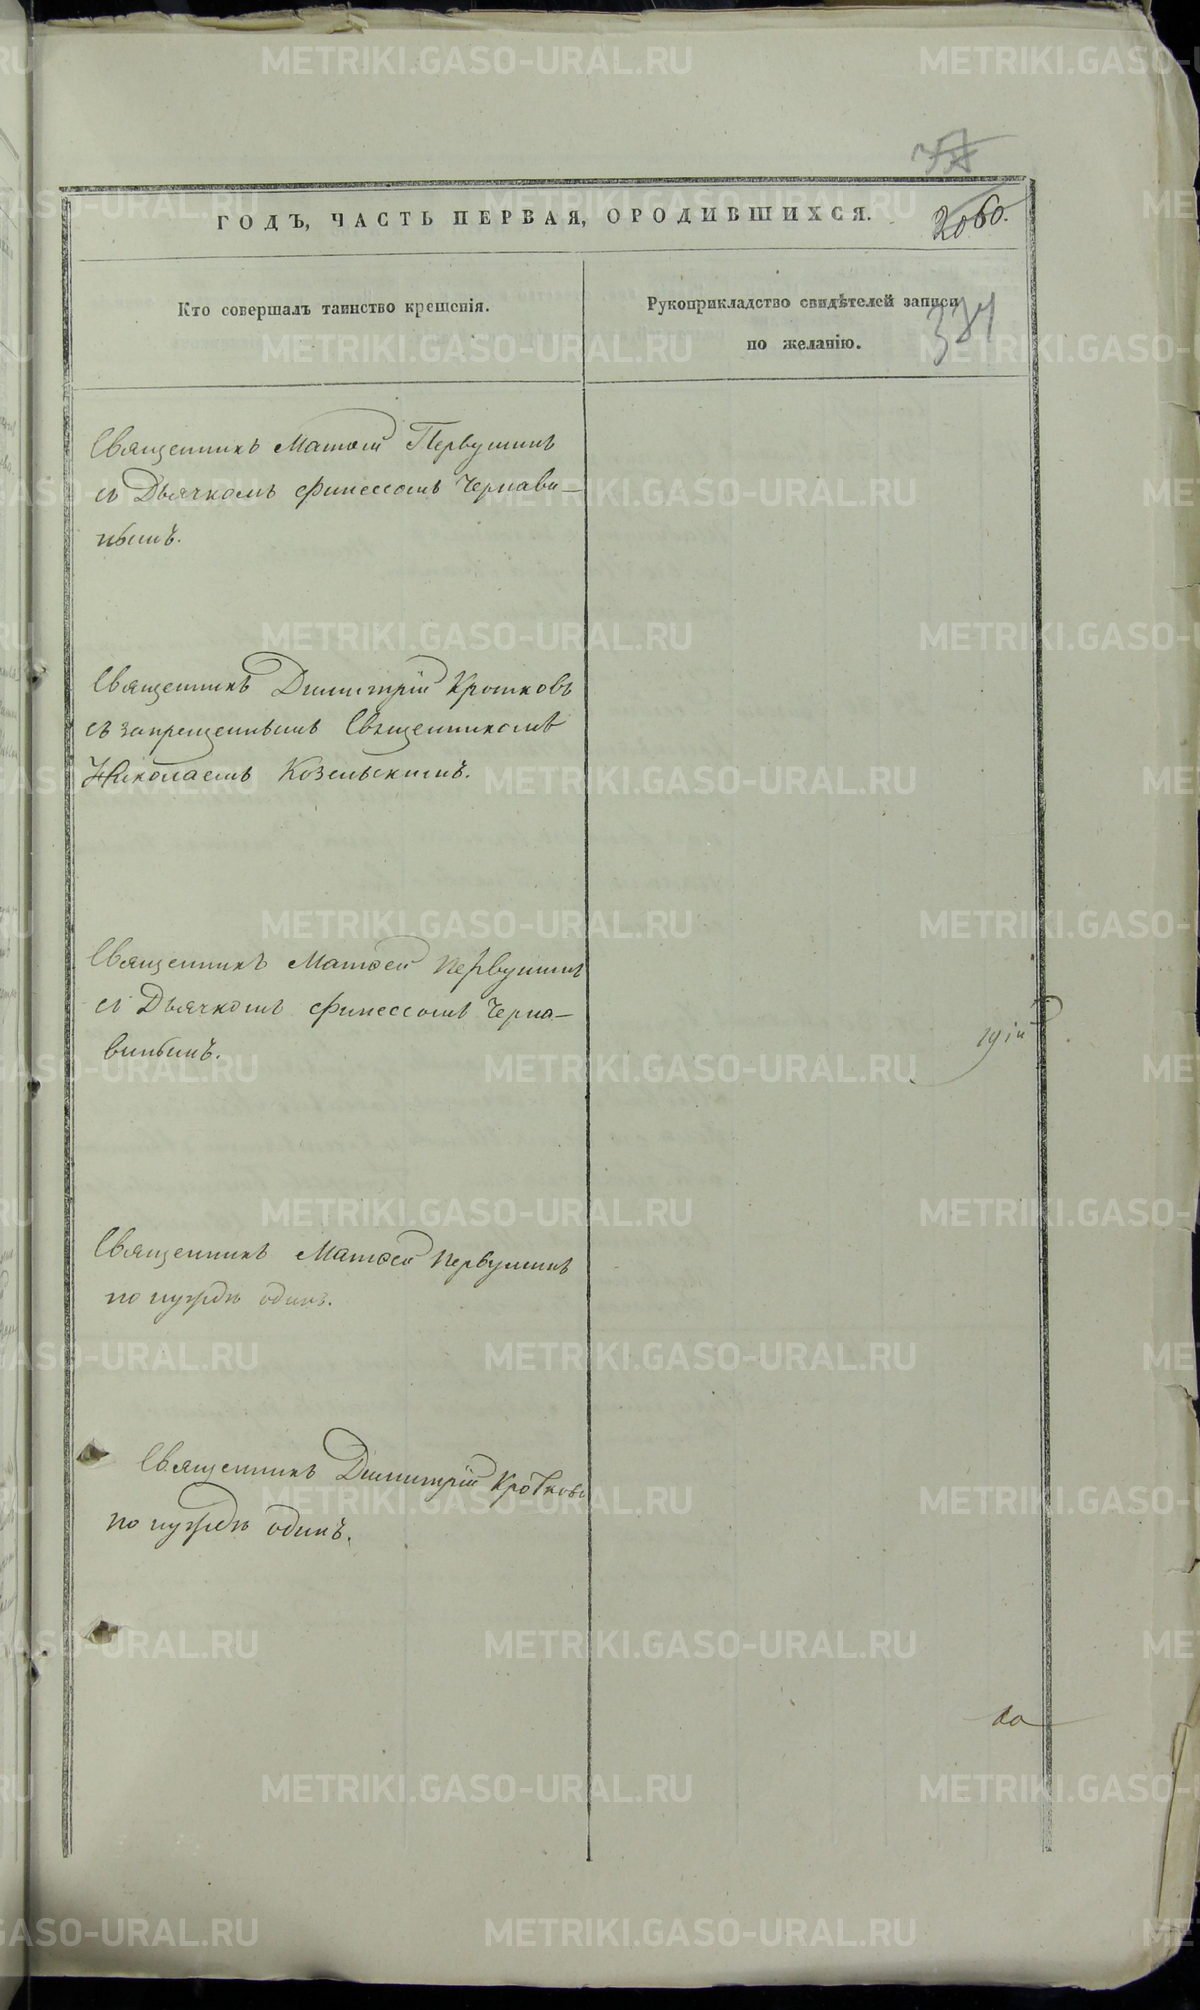 ГОДЪ, ЧАСТЬ ПЕРВАЯ, О РОДИВШИХСЯ.
2060.
Кто совершалъ таинство крещенія.
Рукоприкладство свидѣтелей записи
по желанію.
334
Священникъ Матѳей Первушинъ
съ Дьячкомъ Финессомъ Чернави-
нымъ.
Священникъ Димитрій Кротковъ
съ запрещеннымъ Священникомъ
Николаемъ Козельскимъ.
Священникъ Матѳей Первушинъ
съ Дьячкомъ Финессомъ Черна-
винымъ.
Священникъ Матѳей Первушинъ
по нуждѣ одинъ.
Священникъ Димитрій Кротковъ
по нуждѣ одинъ.
METRIKI.GASO-URAL.RU